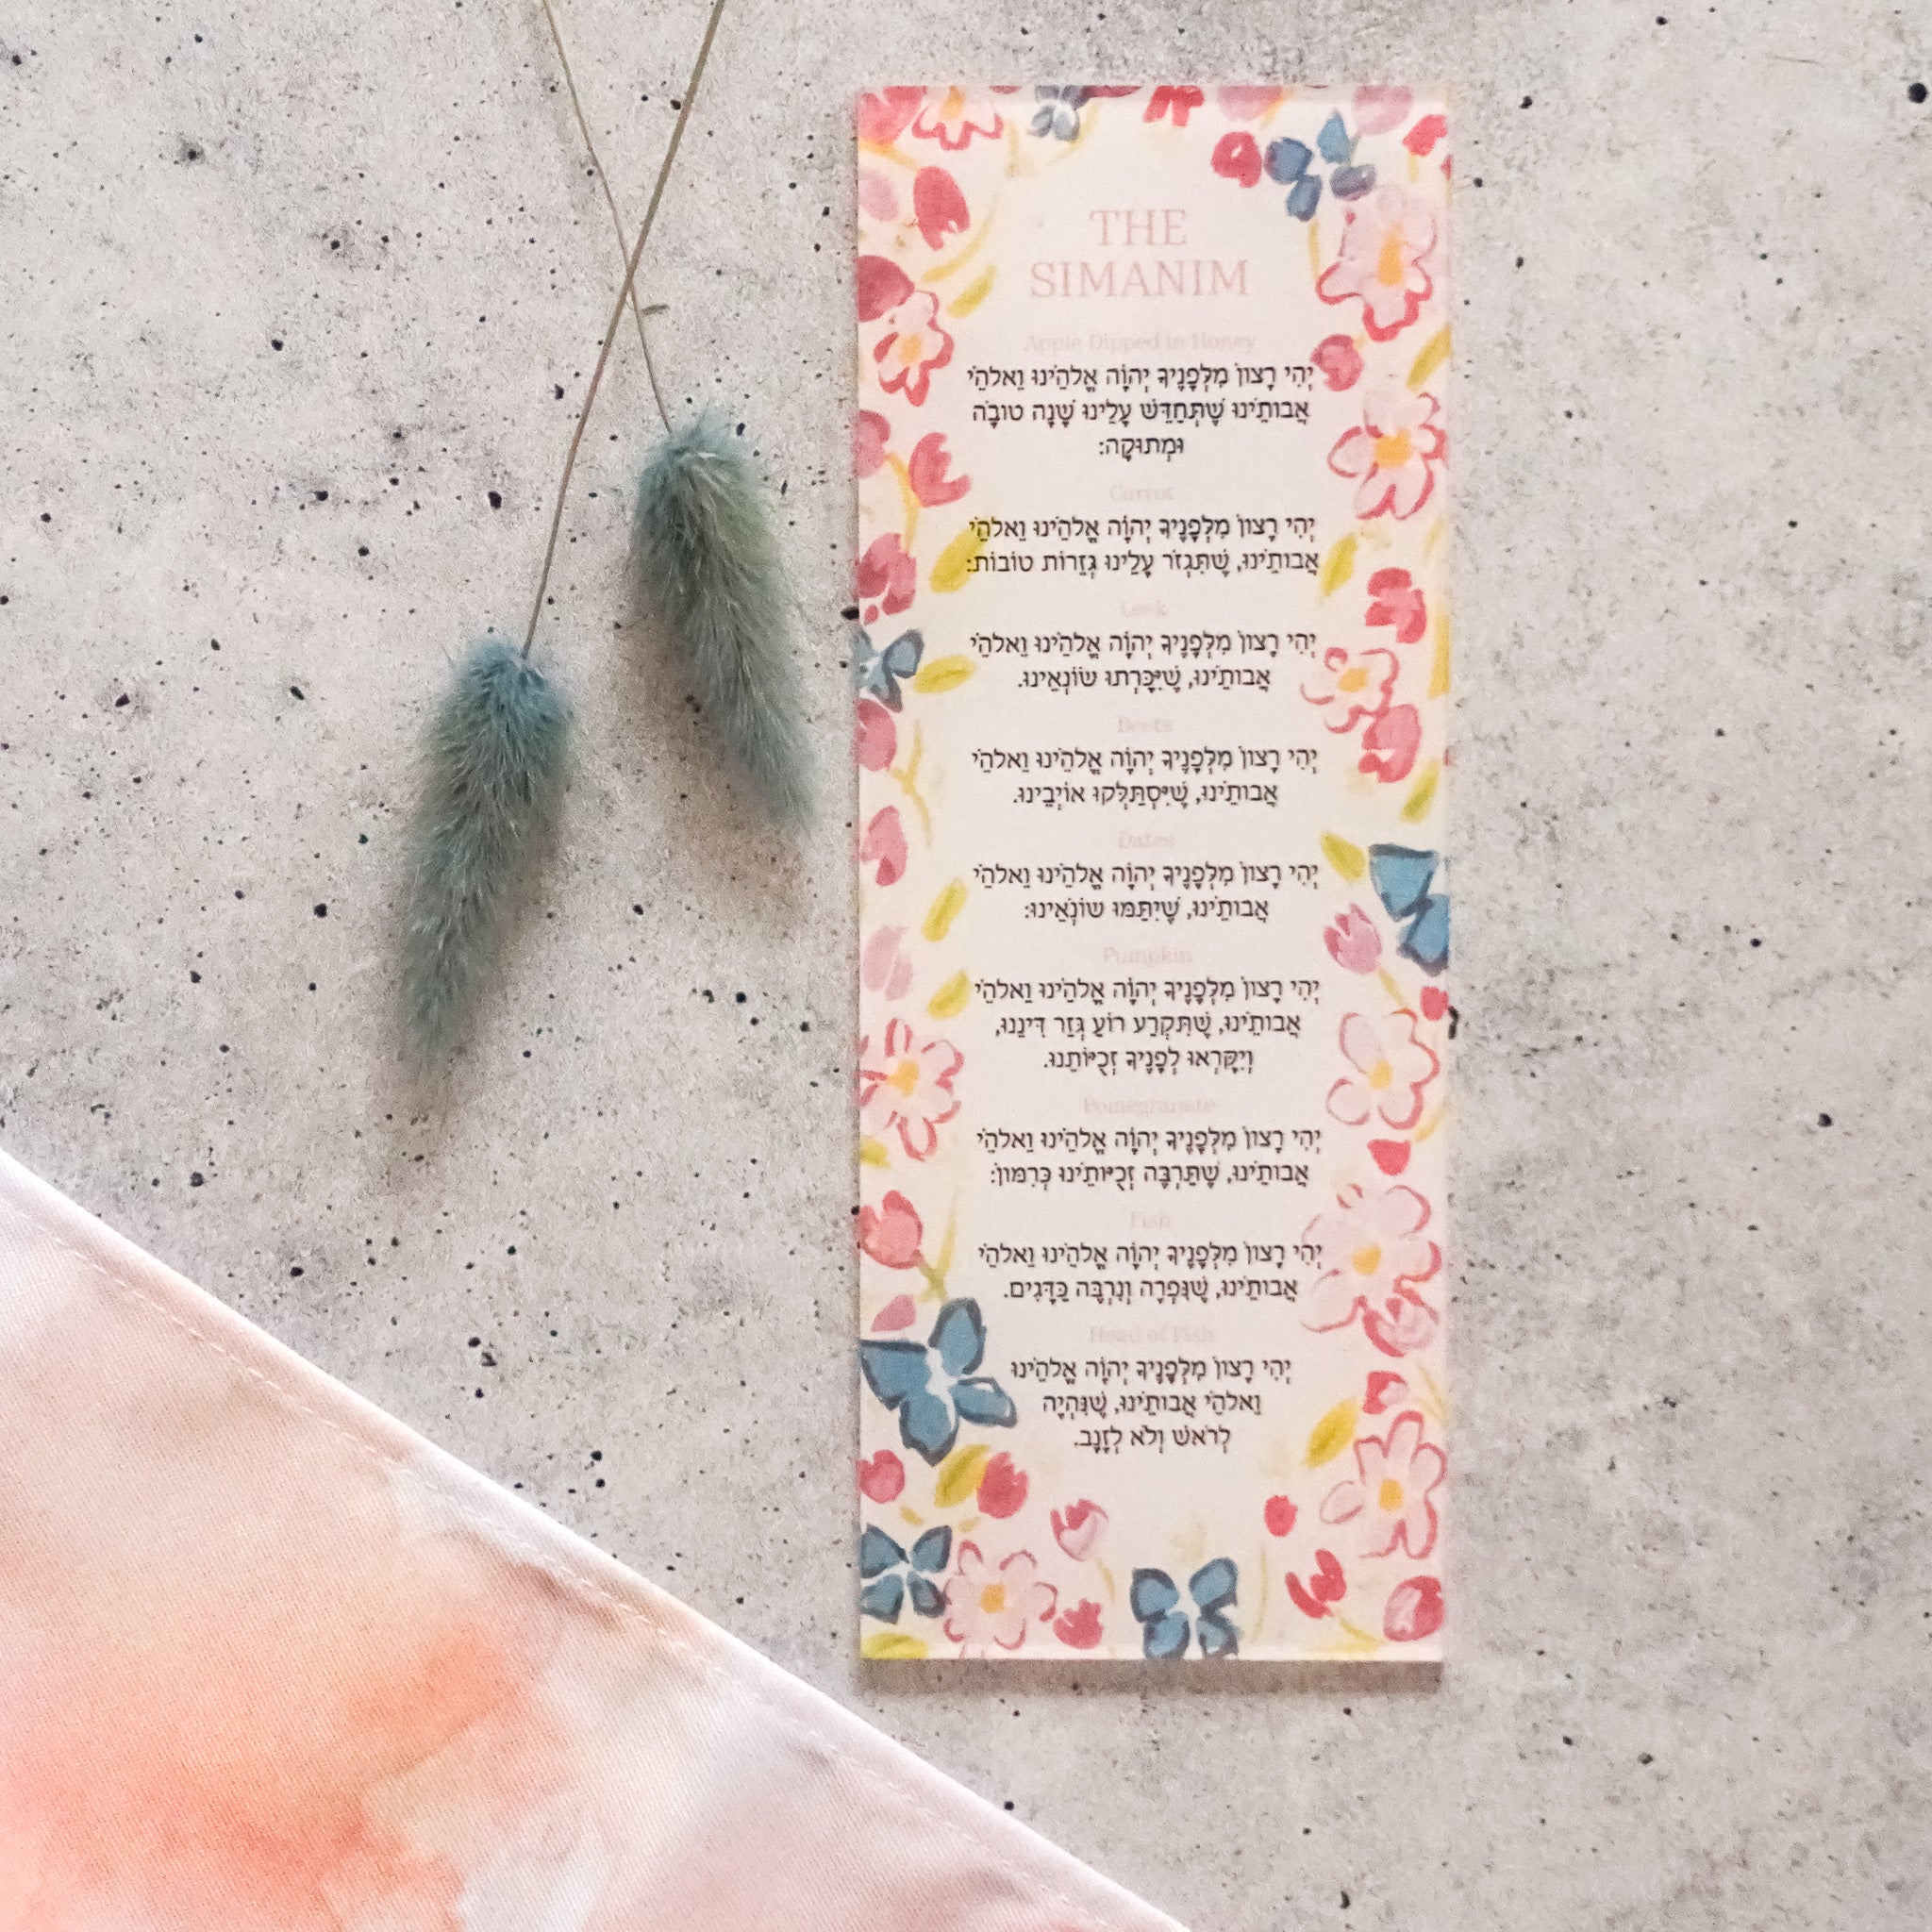 THE
SIMANIM
Apple Dipped in Honey
יְהִי רָצוֹן מִלְּפָנֶיךָ יְהֹוָה אֱלֹהֵינוּ וֵאלֹהֵי
אֲבוֹתֵינוּ שֶׁתְּחַדֵּשׁ עָלֵינוּ שָׁנָה טוֹבָה
וּמְתוּקָה:
Carrot
יְהִי רָצוֹן מִלְּפָנֶיךָ יְהֹוָה אֱלֹהֵינוּ וֵאלֹהֵי
אֲבוֹתֵינוּ, שֶׁתִּגְזֹר עָלֵינוּ גְּזֵרוֹת טוֹבוֹת:
Leek
יְהִי רָצוֹן מִלְּפָנֶיךָ יְהֹוָה אֱלֹהֵינוּ וֵאלֹהֵי
אֲבוֹתֵינוּ, שֶׁיִּכָּרְתוּ שׂוֹנְאֵינוּ.
Beets
יְהִי רָצוֹן מִלְּפָנֶיךָ יְהֹוָה אֱלֹהֵינוּ וֵאלֹהֵי
אֲבוֹתֵינוּ, שֶׁיִּסְתַּלְּקוּ אוֹיְבֵינוּ.
Dates
יְהִי רָצוֹן מִלְּפָנֶיךָ יְהֹוָה אֱלֹהֵינוּ וֵאלֹהֵי
אֲבוֹתֵינוּ, שֶׁיִּתַּמּוּ שׂוֹנְאֵינוּ:
Pumpkin
יְהִי רָצוֹן מִלְּפָנֶיךָ יְהֹוָה אֱלֹהֵינוּ וֵאלֹהֵי
אֲבוֹתֵינוּ, שֶׁתִּקְרַע רוֹעַ גְּזַר דִּינֵנוּ,
וְיִקָּרְאוּ לְפָנֶיךָ זְכֻיּוֹתֵנוּ.
Pomegranate
יְהִי רָצוֹן מִלְּפָנֶיךָ יְהֹוָה אֱלֹהֵינוּ וֵאלֹהֵי
אֲבוֹתֵינוּ, שֶׁתַּרְבֶּה זְכֻיּוֹתֵינוּ כְּרִמּוֹן:
Fish
יְהִי רָצוֹן מִלְּפָנֶיךָ יְהֹוָה אֱלֹהֵינוּ וֵאלֹהֵי
אֲבוֹתֵינוּ, שֶׁנִּפְרֶה וְנִרְבֶּה כַּדָּגִים.
Head of Fish
יְהִי רָצוֹן מִלְּפָנֶיךָ יְהֹוָה אֱלֹהֵינוּ
וֵאלֹהֵי אֲבוֹתֵינוּ, שֶׁנִּהְיֶה
לְרֹאשׁ וְלֹא לְזָנָב.